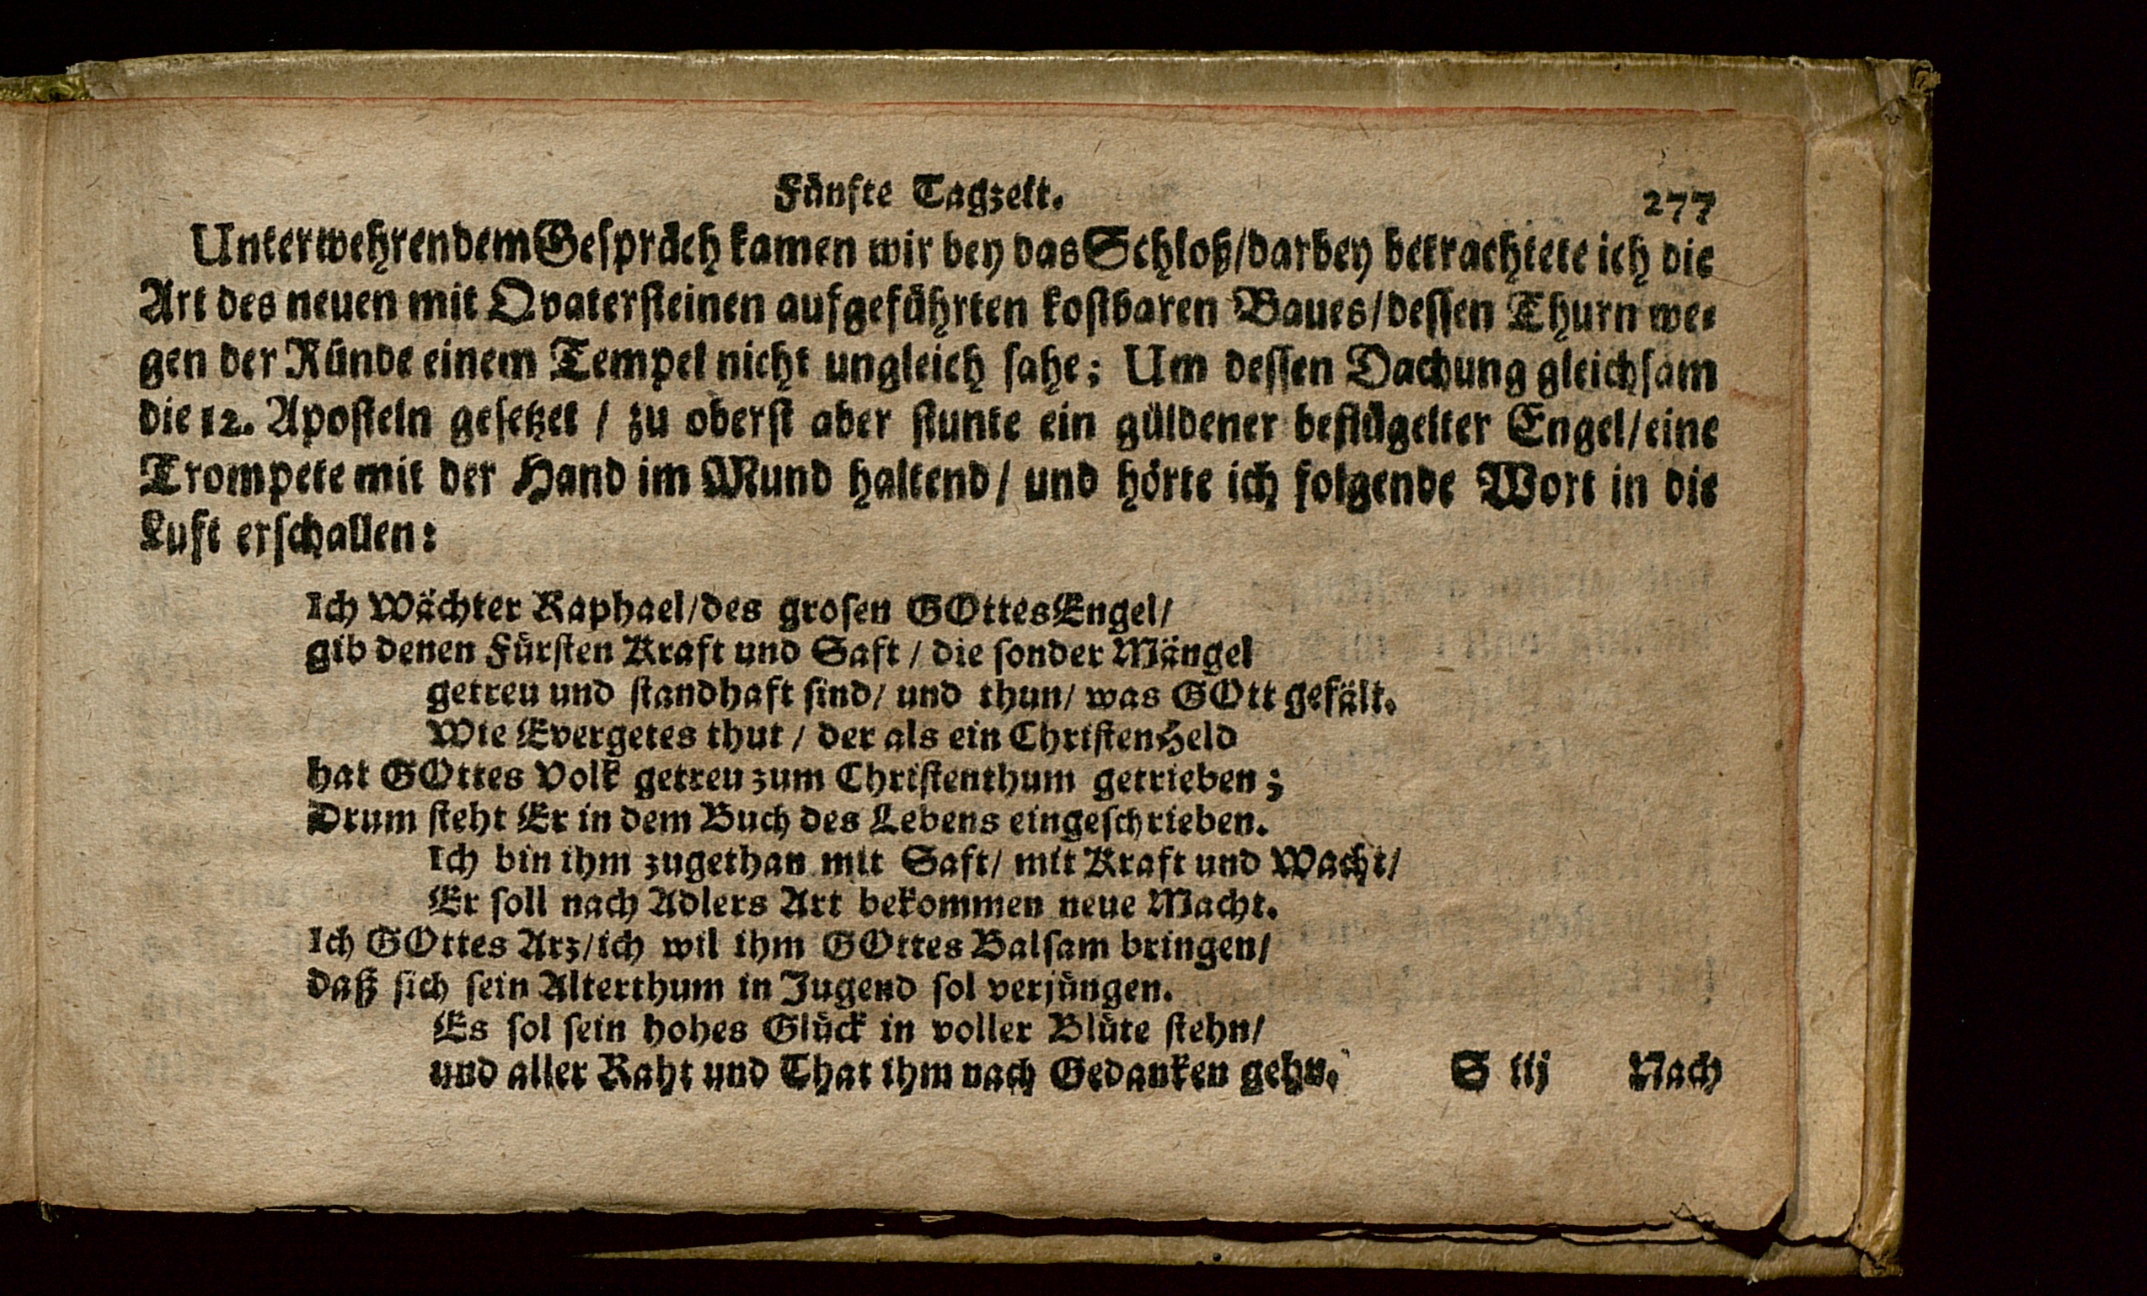 Fünfte Tagzeit. 277
Unterwehrendem Gespräch kamen wir bey das Schloß/darbey betrachtete ich die
Art des neuen mit Qvatersteinen aufgeführten kostbaren Baues/dessen Thurn we-
gen der Ründe einem Tempel nicht ungleich sahe; Um dessen Dachung gleichsam
die 12. Aposteln gesetzet / zu oberst aber stunte ein güldener beflügelter Engel/eine
Trompete mit der Hand im Mund haltend/ und hörte ich folgende Wort in die
Luft erschallen:
Ich Wächter Raphael/des grosen GOttes Engel/
gib denen Fürsten Kraft und Saft / die sonder Mängel
getreu und standhaft sind/ und thun/ was GOtt gefält.
Wie Evergetes thut / der als ein ChristenHeld
hat GOttes Volk getreu zum Christenthum getrieben;
Drum steht Er in dem Buch des Lebens eingeschrieben.
Ich bin ihm zugethan mit Saft/ mit Kraft und Wacht/
Er soll nach Adlers Art bekommen neue Macht.
Ich GOttes Arz/ich wil ihm GOttes Balsam bringen/
daß sich sein Alterthum in Jugend sol verjüngen.
Es sol sein hohes Glück in voller Blüte stehn/
und aller Raht und That ihm nach Gedanken gehn. S iij Nach